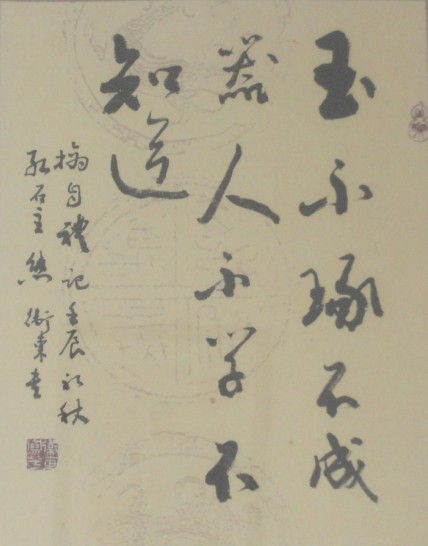 玉不琢不成
器人不学不
知道
摘自礼记壬辰初秋
卫东书